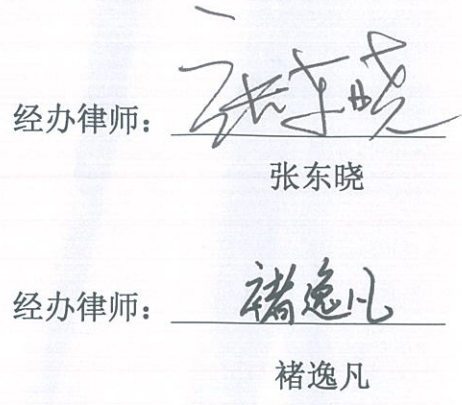 经办律师：张东晓
张东晓
经办律师：褚逸凡
褚逸凡